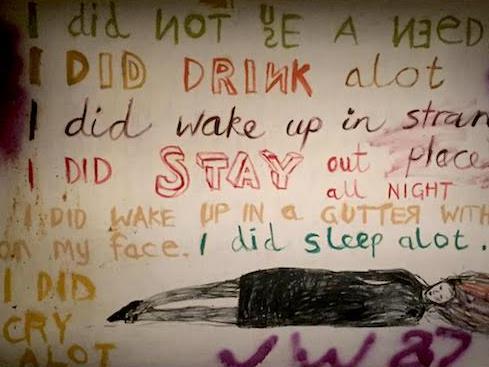 I did NOT USE A NEED
I DID DRINK alot
I did wake up in stran
I DID STAY out place
all NIGHT
I DID WAKE UP IN a GUTTER WITH
on my face. I did sleep alot.
I DID
CRY
ALOT